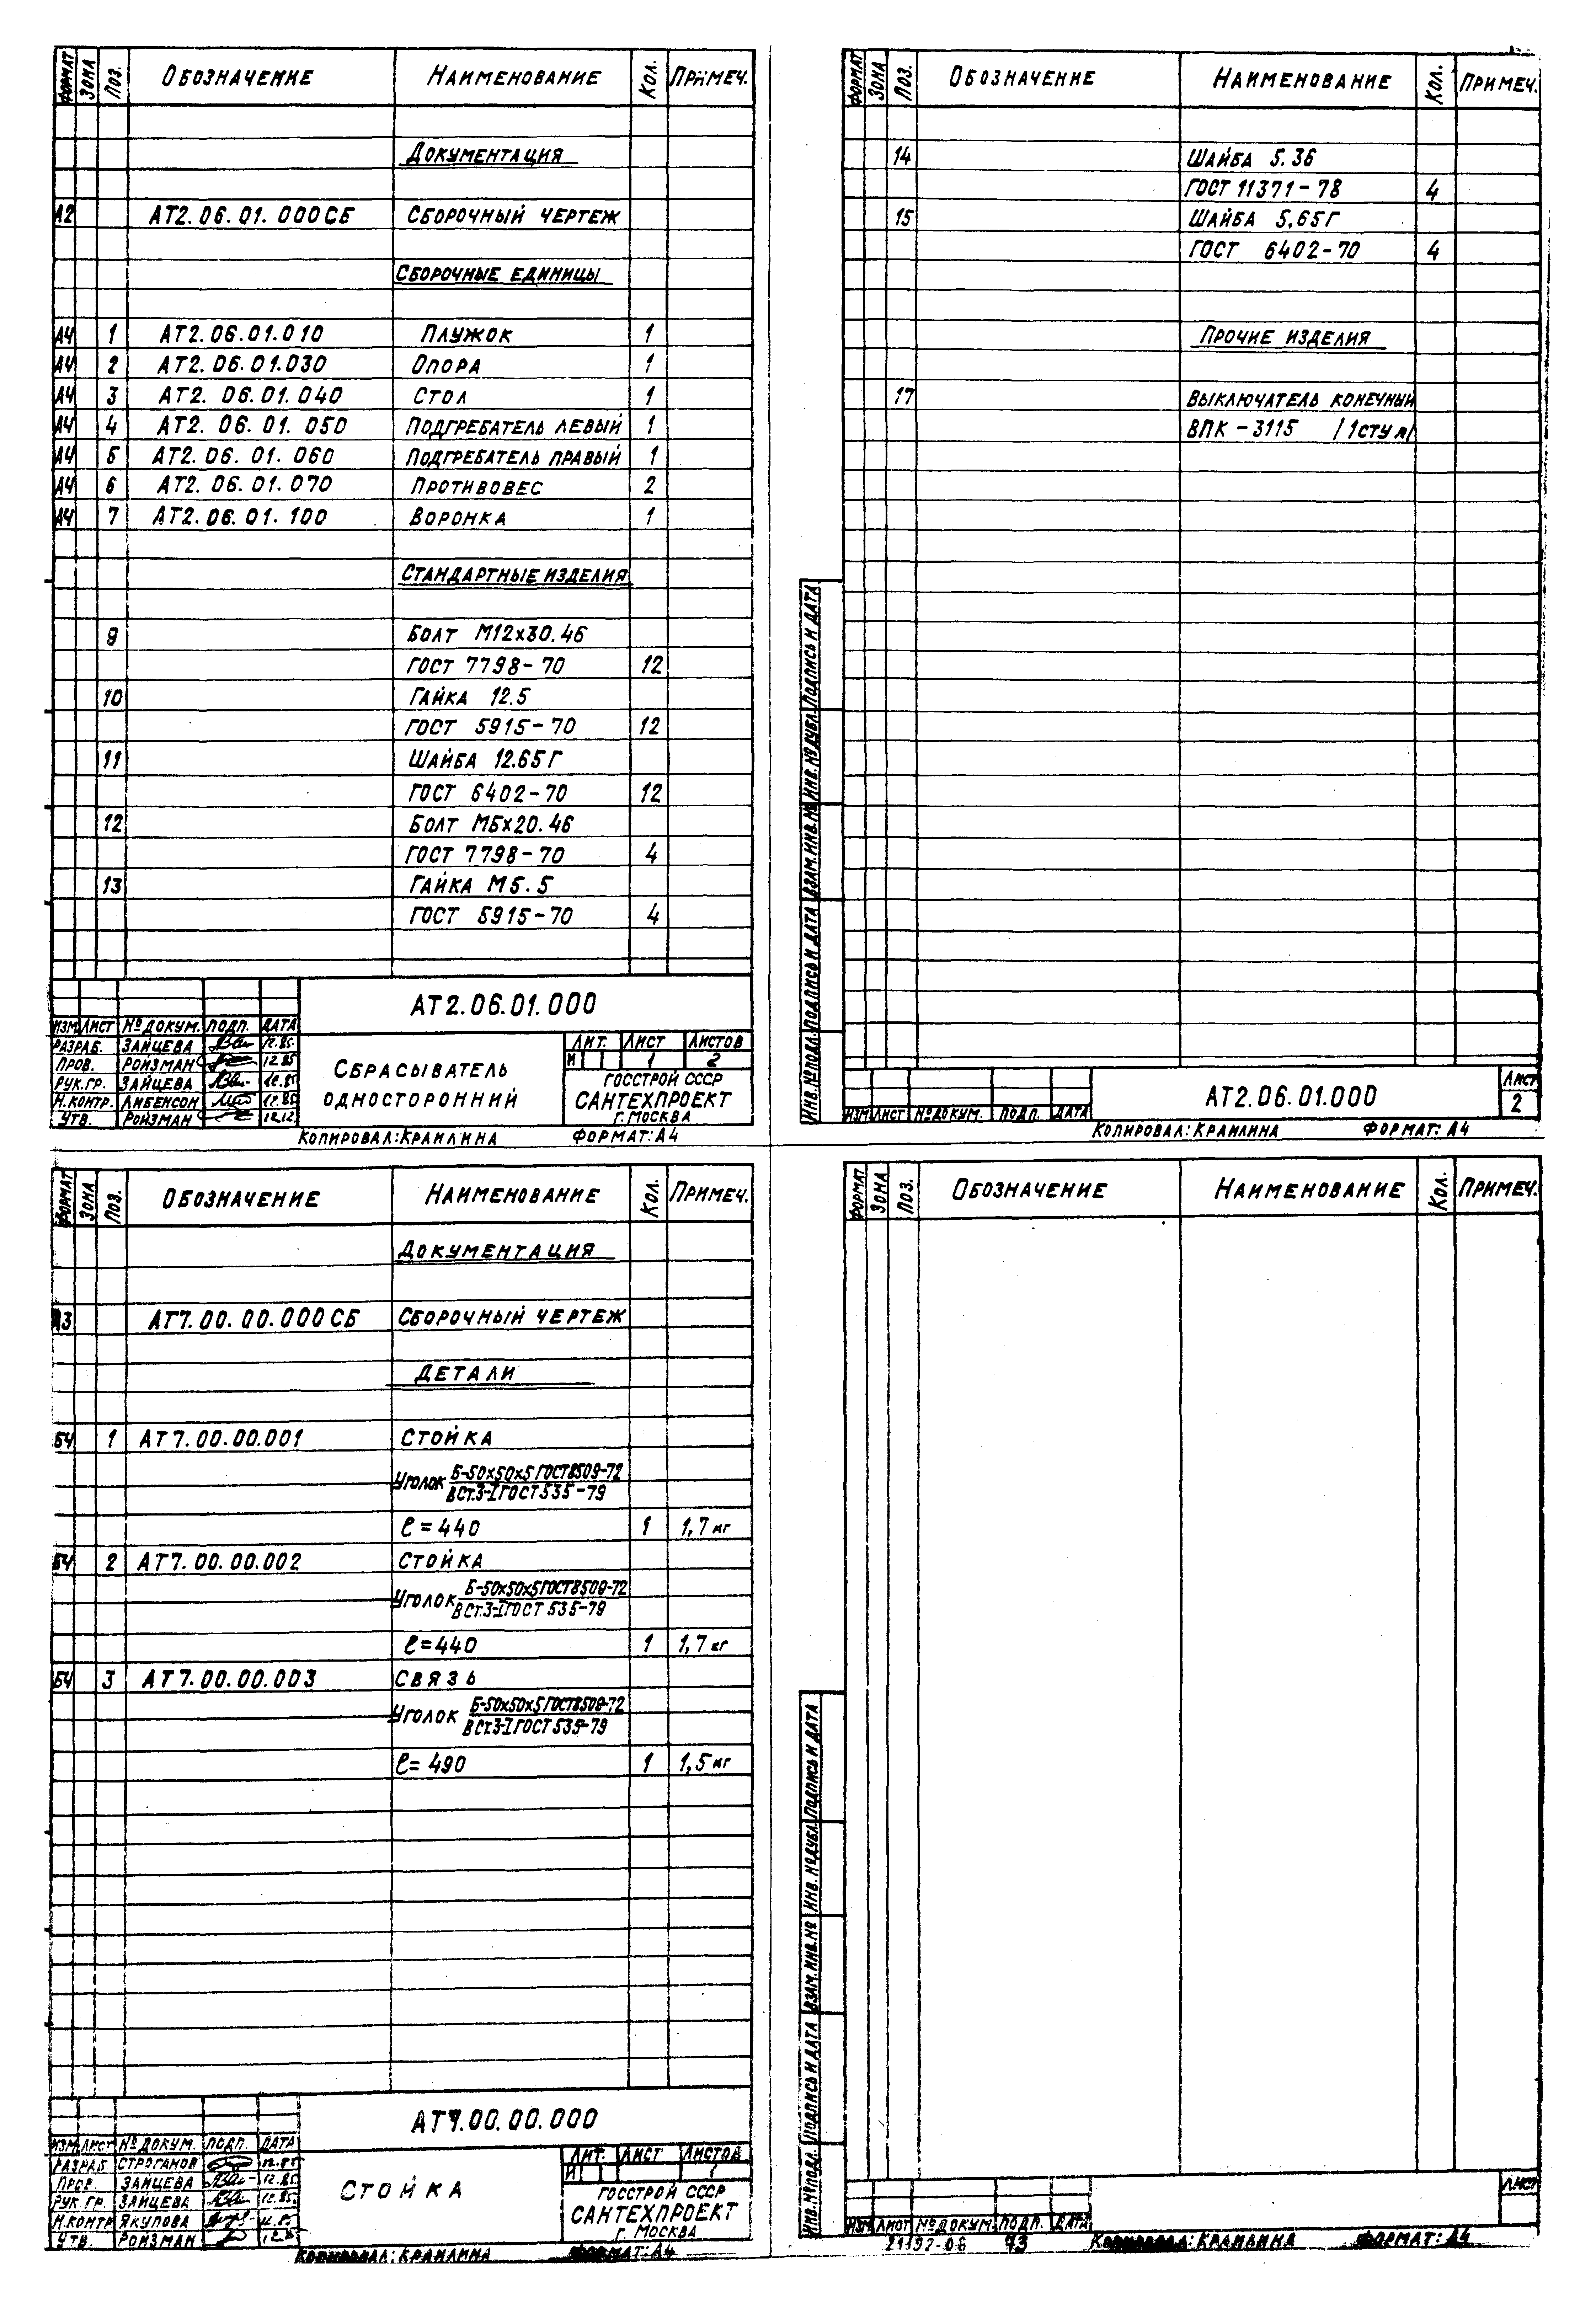 ФОРМАТ ЗОНА ПОЗ. ОБОЗНАЧЕНИЕ НАИМЕНОВАНИЕ КОЛ. ПРИМЕЧ.
ДОКУМЕНТАЦИЯ
А2 АТ2.06.01.000СБ СБОРОЧНЫЙ ЧЕРТЕЖ
СБОРОЧНЫЕ ЕДИНИЦЫ
А4 1 АТ2.06.01.010 ПЛУЖОК 1
А4 2 АТ2.06.01.030 ОПОРА 1
А4 3 АТ2.06.01.040 СТОЛ 1
А4 4 АТ2.06.01.050 ПОДГРЕБАТЕЛЬ ЛЕВЫЙ 1
А4 5 АТ2.06.01.060 ПОДГРЕБАТЕЛЬ ПРАВЫЙ 1
А4 6 АТ2.06.01.070 ПРОТИВОВЕС 2
А4 7 АТ2.06.01.100 ВОРОНКА 1
СТАНДАРТНЫЕ ИЗДЕЛИЯ
9 БОЛТ М12х30.46
ГОСТ 7798-70 12
10 ГАЙКА 12.5
ГОСТ 5915-70 12
11 ШАЙБА 12.65Г
ГОСТ 6402-70 12
12 БОЛТ М5х20.46
ГОСТ 7798-70 4
13 ГАЙКА М5.5
ГОСТ 5915-70 4
АТ2.06.01.000
ИЗМ. ЛИСТ № ДОКУМ. ПОДП. ДАТА
РАЗРАБ. ЗАЙЦЕВА 12.85
ПРОВ. РОЙЗМАН 12.85
РУК.ГР. ЗАЙЦЕВА 12.85
Н.КОНТР. ЛИБЕНСОН 12.85
УТВ. РОЙЗМАН 12.12
СБРАСЫВАТЕЛЬ
ОДНОСТОРОННИЙ
ЛИТ. ЛИСТ ЛИСТОВ
И 1 2
ГОССТРОЙ СССР
САНТЕХПРОЕКТ
Г. МОСКВА
КОПИРОВАЛ: КРАИЛИНА ФОРМАТ: А4
ФОРМАТ ЗОНА ПОЗ. ОБОЗНАЧЕНИЕ НАИМЕНОВАНИЕ КОЛ. ПРИМЕЧ.
14 ШАЙБА 5.36
ГОСТ 11371-78 4
15 ШАЙБА 5.65Г
ГОСТ 6402-70 4
ПРОЧИЕ ИЗДЕЛИЯ
17 ВЫКЛЮЧАТЕЛЬ КОНЕЧНЫЙ
ВПК-3115 /1СТУЛ/
ИНВ.№ ПОДЛ. ПОДПИСЬ И ДАТА ВЗАМ.ИНВ.№ ИНВ.№ ДУБЛ. ПОДПИСЬ И ДАТА
ИЗМ ЛИСТ № ДОКУМ. ПОДП. ДАТА
АТ2.06.01.000
ЛИСТ
2
КОПИРОВАЛ: КРАИЛИНА ФОРМАТ: А4
ФОРМАТ ЗОНА ПОЗ. ОБОЗНАЧЕНИЕ НАИМЕНОВАНИЕ КОЛ. ПРИМЕЧ.
ДОКУМЕНТАЦИЯ
А3 АТ7.00.00.000СБ СБОРОЧНЫЙ ЧЕРТЕЖ
ДЕТАЛИ
БЧ 1 АТ7.00.00.001 СТОЙКА
УГОЛОК Б-50х50х5 ГОСТ 8509-72
ВСт.3-I ГОСТ 535-79
ℓ=440 1 1,7 кг
БЧ 2 АТ7.00.00.002 СТОЙКА
УГОЛОК Б-50х50х5 ГОСТ 8509-72
ВСт.3-I ГОСТ 535-79
ℓ=440 1 1,7 кг
БЧ 3 АТ7.00.00.003 СВЯЗЬ
УГОЛОК Б-50х50х5 ГОСТ 8509-72
ВСт.3-I ГОСТ 535-79
ℓ=490 1 1,5 кг
АТ7.00.00.000
ИЗМ ЛИСТ № ДОКУМ. ПОДП. ДАТА
РАЗРАБ СТРОГАНОВ 12.85
ПРОВ. ЗАЙЦЕВА 12.85
РУК ГР. ЗАЙЦЕВА 12.85
Н.КОНТР ЯКУПОВА 12.85
УТВ. РОЙЗМАН 12.85
СТОЙКА
ЛИТ. ЛИСТ ЛИСТОВ
И 1
ГОССТРОЙ СССР
САНТЕХПРОЕКТ
Г. МОСКВА
КОПИРОВАЛ: КРАИЛИНА ФОРМАТ: А4
ФОРМАТ ЗОНА ПОЗ. ОБОЗНАЧЕНИЕ НАИМЕНОВАНИЕ КОЛ. ПРИМЕЧ.
ИНВ.№ ПОДЛ. ПОДПИСЬ И ДАТА ВЗАМ.ИНВ.№ ИНВ.№ ДУБЛ. ПОДПИСЬ И ДАТА
ИЗМ ЛИСТ № ДОКУМ. ПОДП. ДАТА
ЛИСТ
21192-06 43 КОПИРОВАЛ: КРАИЛИНА ФОРМАТ: А4